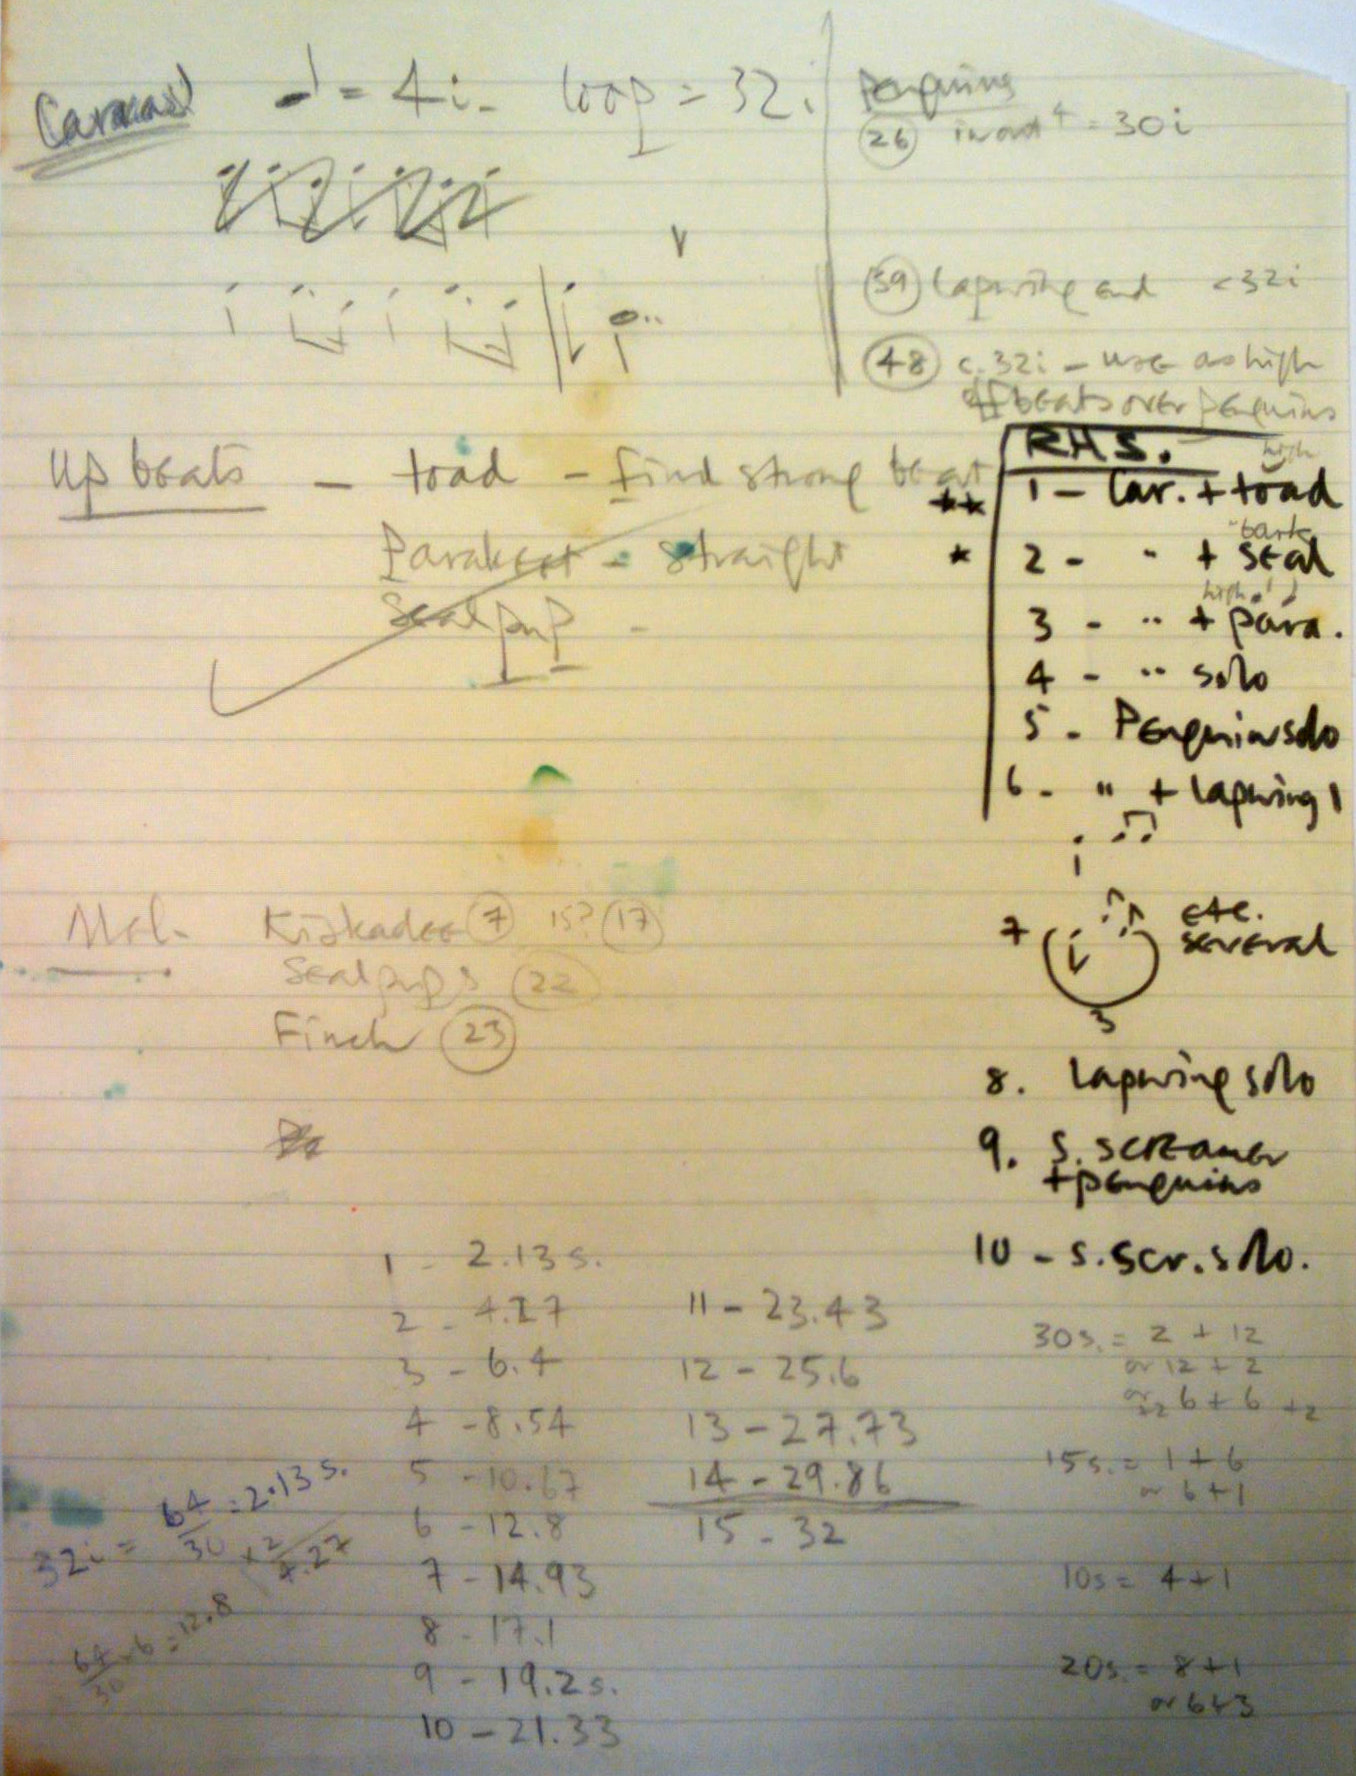 ♩ = 4i - loop = 32i
Penguins
26 in out 4 = 30i
39 Lapwing end <32i
48 c.32i - use as high
offbeats over penguins
Up beats - toad - find strong beat
Parakeet - straight
Seal pup -
RHS.
high
** 1 - Car. + toad
bark
* 2 - " + seal
high
3 - " + para.
4 - " solo
5 - Penguin solo
6 - " + Lapwing 1
7 etc.
several
3
Mel. Kiskadee 7 15? 17
Seal pups 22
Finch 23
8. Lapwing solo
9. S. screamer
+ penguins
10 - S. scr. solo.
1 - 2.13 s.
2 - 4.27
3 - 6.4
4 - 8.54
5 - 10.67
6 - 12.8
7 - 14.93
8 - 17.1
9 - 19.2 s.
10 - 21.33
11 - 23.43
12 - 25.6
13 - 27.73
14 - 29.86
15 - 32
30s. = 2 + 12
or 12 + 2
or 6 + 6 +2
15s. = 1 + 6
or 6 + 1
10s = 4 + 1
20s. = 8 + 1
or 6 + 3
32i = 64/30 = 2.13 s.
x 2
4.27
64/30 x 6 = 12.8